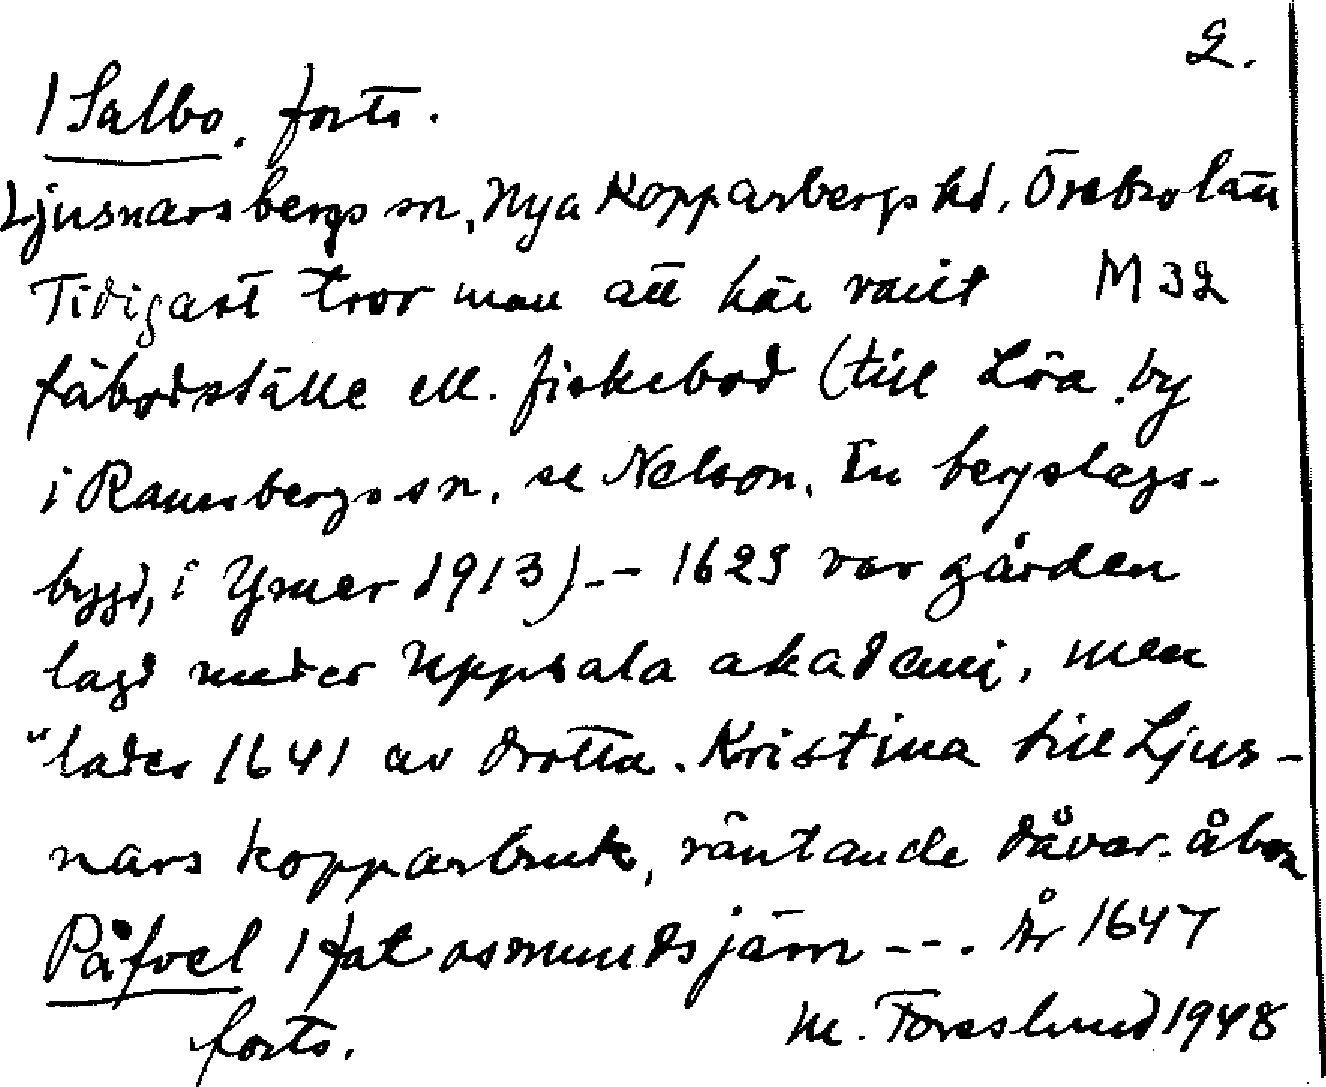 2.
1 Salbo. forts.
Ljusnarsbergs sn, Nya Kopparbergs hd, Örebro län
Tidigast tror man att här varit M 32
fäbodställe ell. fiskebod (till Löa by
i Ramsbergs sn, se Nelson, En bergslags-
bygd, i Ymer 1913) -- 1625 var gården
lagd under Uppsala akademi, men
"lades 1641 av drottn. Kristina till Ljus-
nars kopparbruk, räntande dåvar. åbon
Påfvel 1 fat osmundsjärn ---. År 1647
forts. M. Foreslund 1948